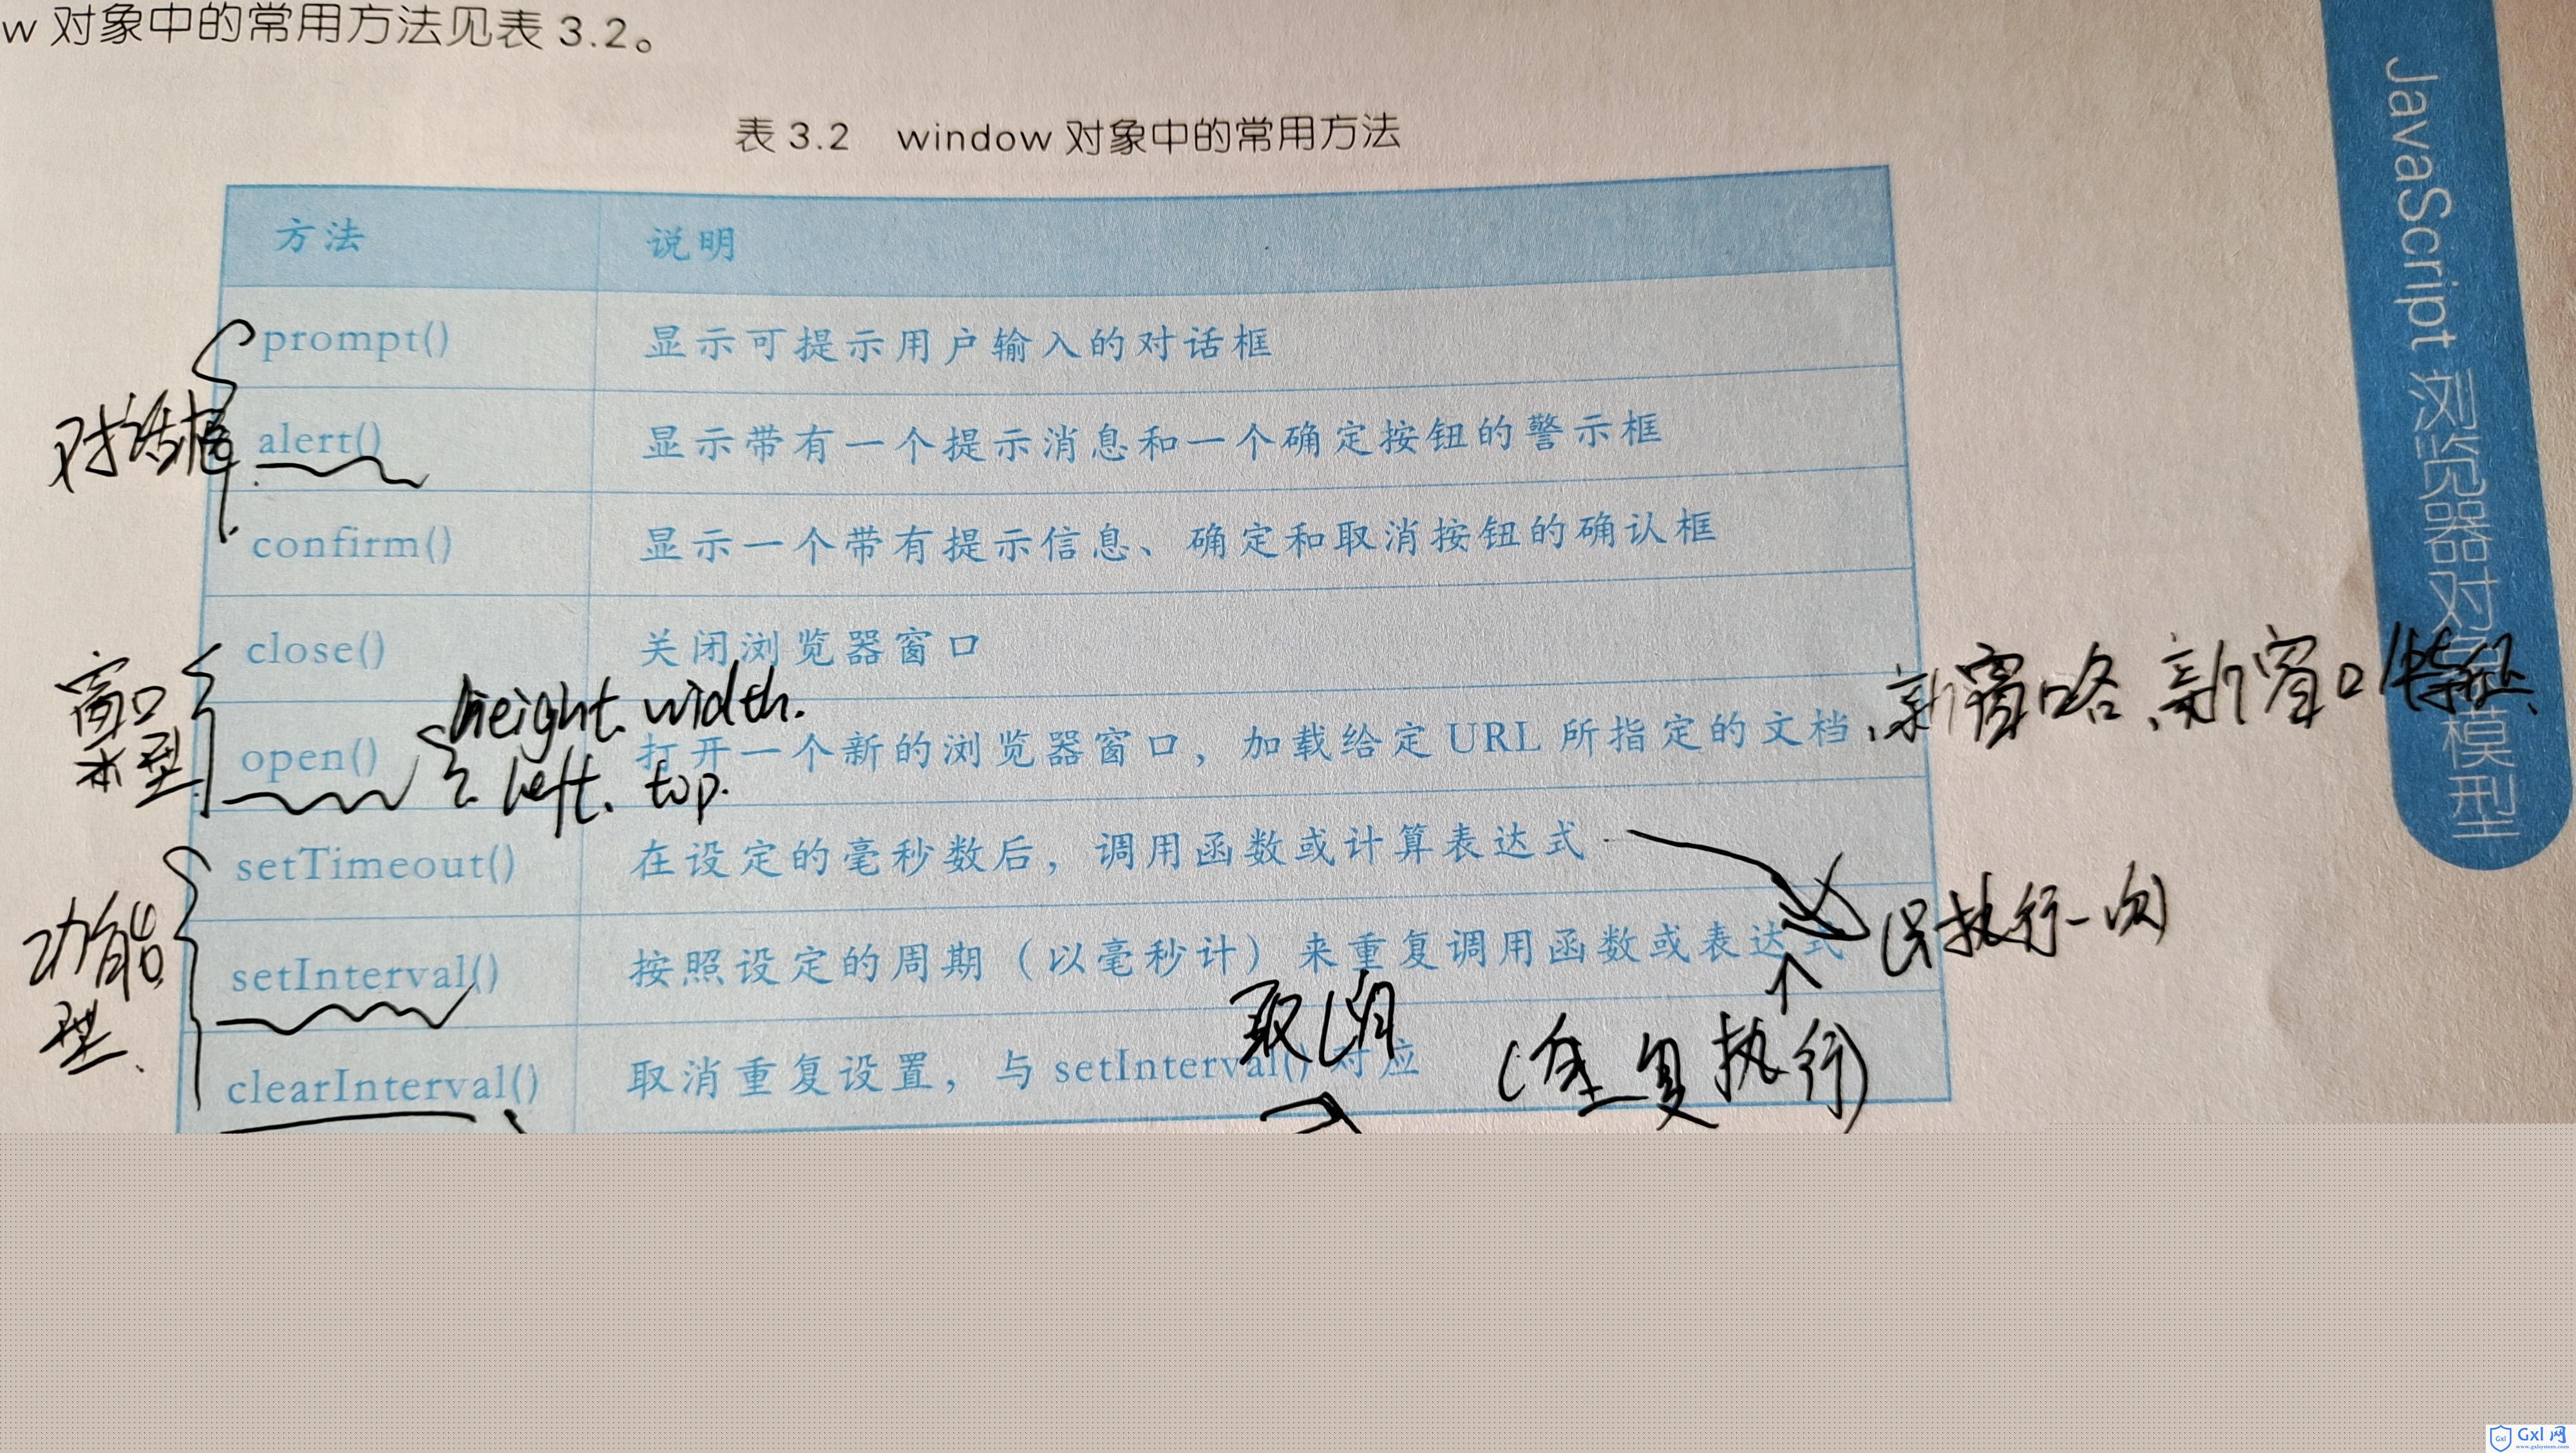 w 对象中的常用方法见表 3.2。
表 3.2 window 对象中的常用方法
方法 说明
prompt() 显示可提示用户输入的对话框
对话框
alert() 显示带有一个提示消息和一个确定按钮的警示框
confirm() 显示一个带有提示信息、确定和取消按钮的确认框
close() 关闭浏览器窗口
窗口
height. width.
open() 打开一个新的浏览器窗口，加载给定 URL 所指定的文档
新窗口名、新窗口特征、
型
left. top.
setTimeout() 在设定的毫秒数后，调用函数或计算表达式
功能
型、
只执行一次
setInterval() 按照设定的周期（以毫秒计）来重复调用函数或表达式
取消
(重复执行)
clearInterval() 取消重复设置，与 setInterval() 对应
JavaScript 浏览器对象模型
Gxl 网
www.gxlsystem.com